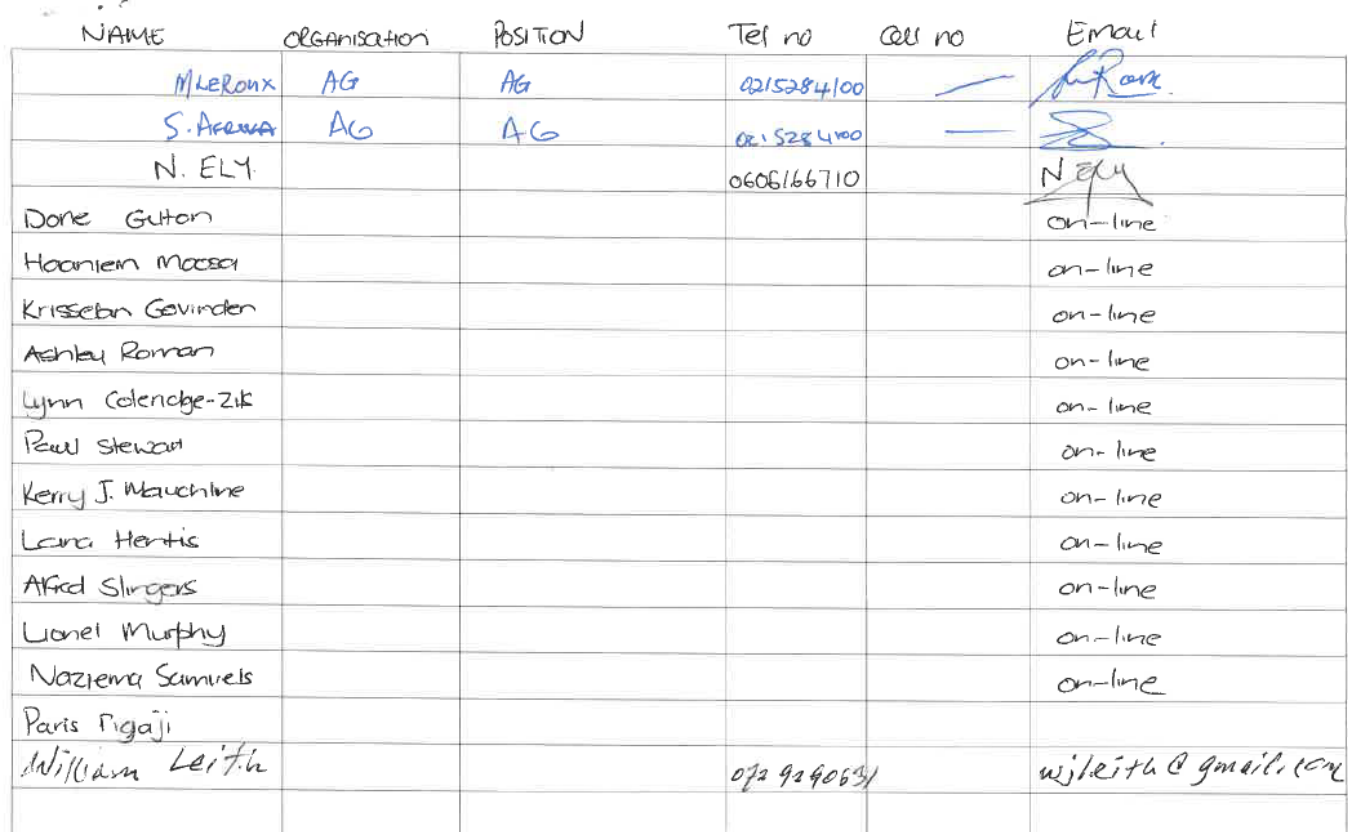 NAME ORGANISATION POSITION Tel no Cell no Email
M LEROUX AG AG 0215284100 —
S. AG AG 0215284100 —
N. ELY 0606166710 N Ely
on-line
Moosa on-line
Govinden on-line
Ashley Roman on-line
Lynn Coleridge-Zils on-line
Paul Stewart on-line
Kerry J. Mauchline on-line
Lana Hertis on-line
Slingers on-line
Lionel Murphy on-line
Naziema Samuels on-line
Paris
William Leith 072 9290631 wjleith@gmail.com